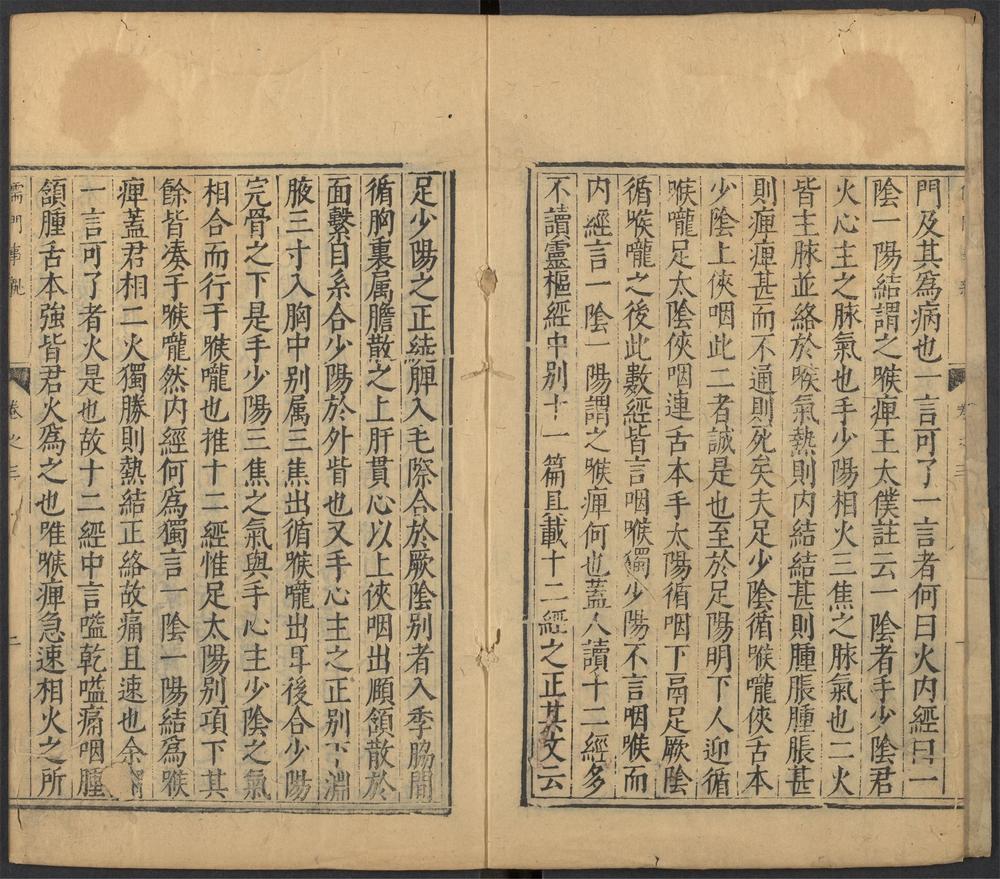 門及其爲病也一言可了一言者何曰火内經曰一
陰一陽結謂之喉痺王太僕註云一陰者手少陰君
火心主之脉氣也手少陽相火三焦之脉氣也二火
皆主脉並絡於喉氣熱則内結結甚則腫脹腫脹甚
則痺痺甚而不通則死矣夫足少陰循喉嚨俠舌本
少陰上俠咽此二者誠是也至於足陽明下人迎循
喉嚨足太陰俠咽連舌本手太陽循咽下鬲足厥陰
循喉嚨之後此數經皆言咽喉獨少陽不言咽喉而
内經言一陰一陽謂之喉痺何也蓋人讀十二經多
不讀靈樞經中别十一篇且載十二經之正其文云
足少陽之正繞髀入毛際合於厥陰别者入季脇間
循胸裏属膽散之上肝貫心以上俠咽出頤頷散於
面繫目系合少陽於外眥也又手心主之正别下淵
腋三寸入胸中别属三焦出循喉嚨出耳後合少陽
完骨之下是手少陽三焦之氣與手心主少陰之氣
相合而行于喉嚨也推十二經惟足太陽别項下其
餘皆湊于喉嚨然内經何爲獨言一陰一陽結爲喉
痺蓋君相二火獨勝則熱結正絡故痛且速也余
一言可了者火是也故十二經中言嗌乾嗌痛咽腫
頷腫舌本強皆君火爲之也唯喉痺急速相火之所
儒門事親
卷之三
二